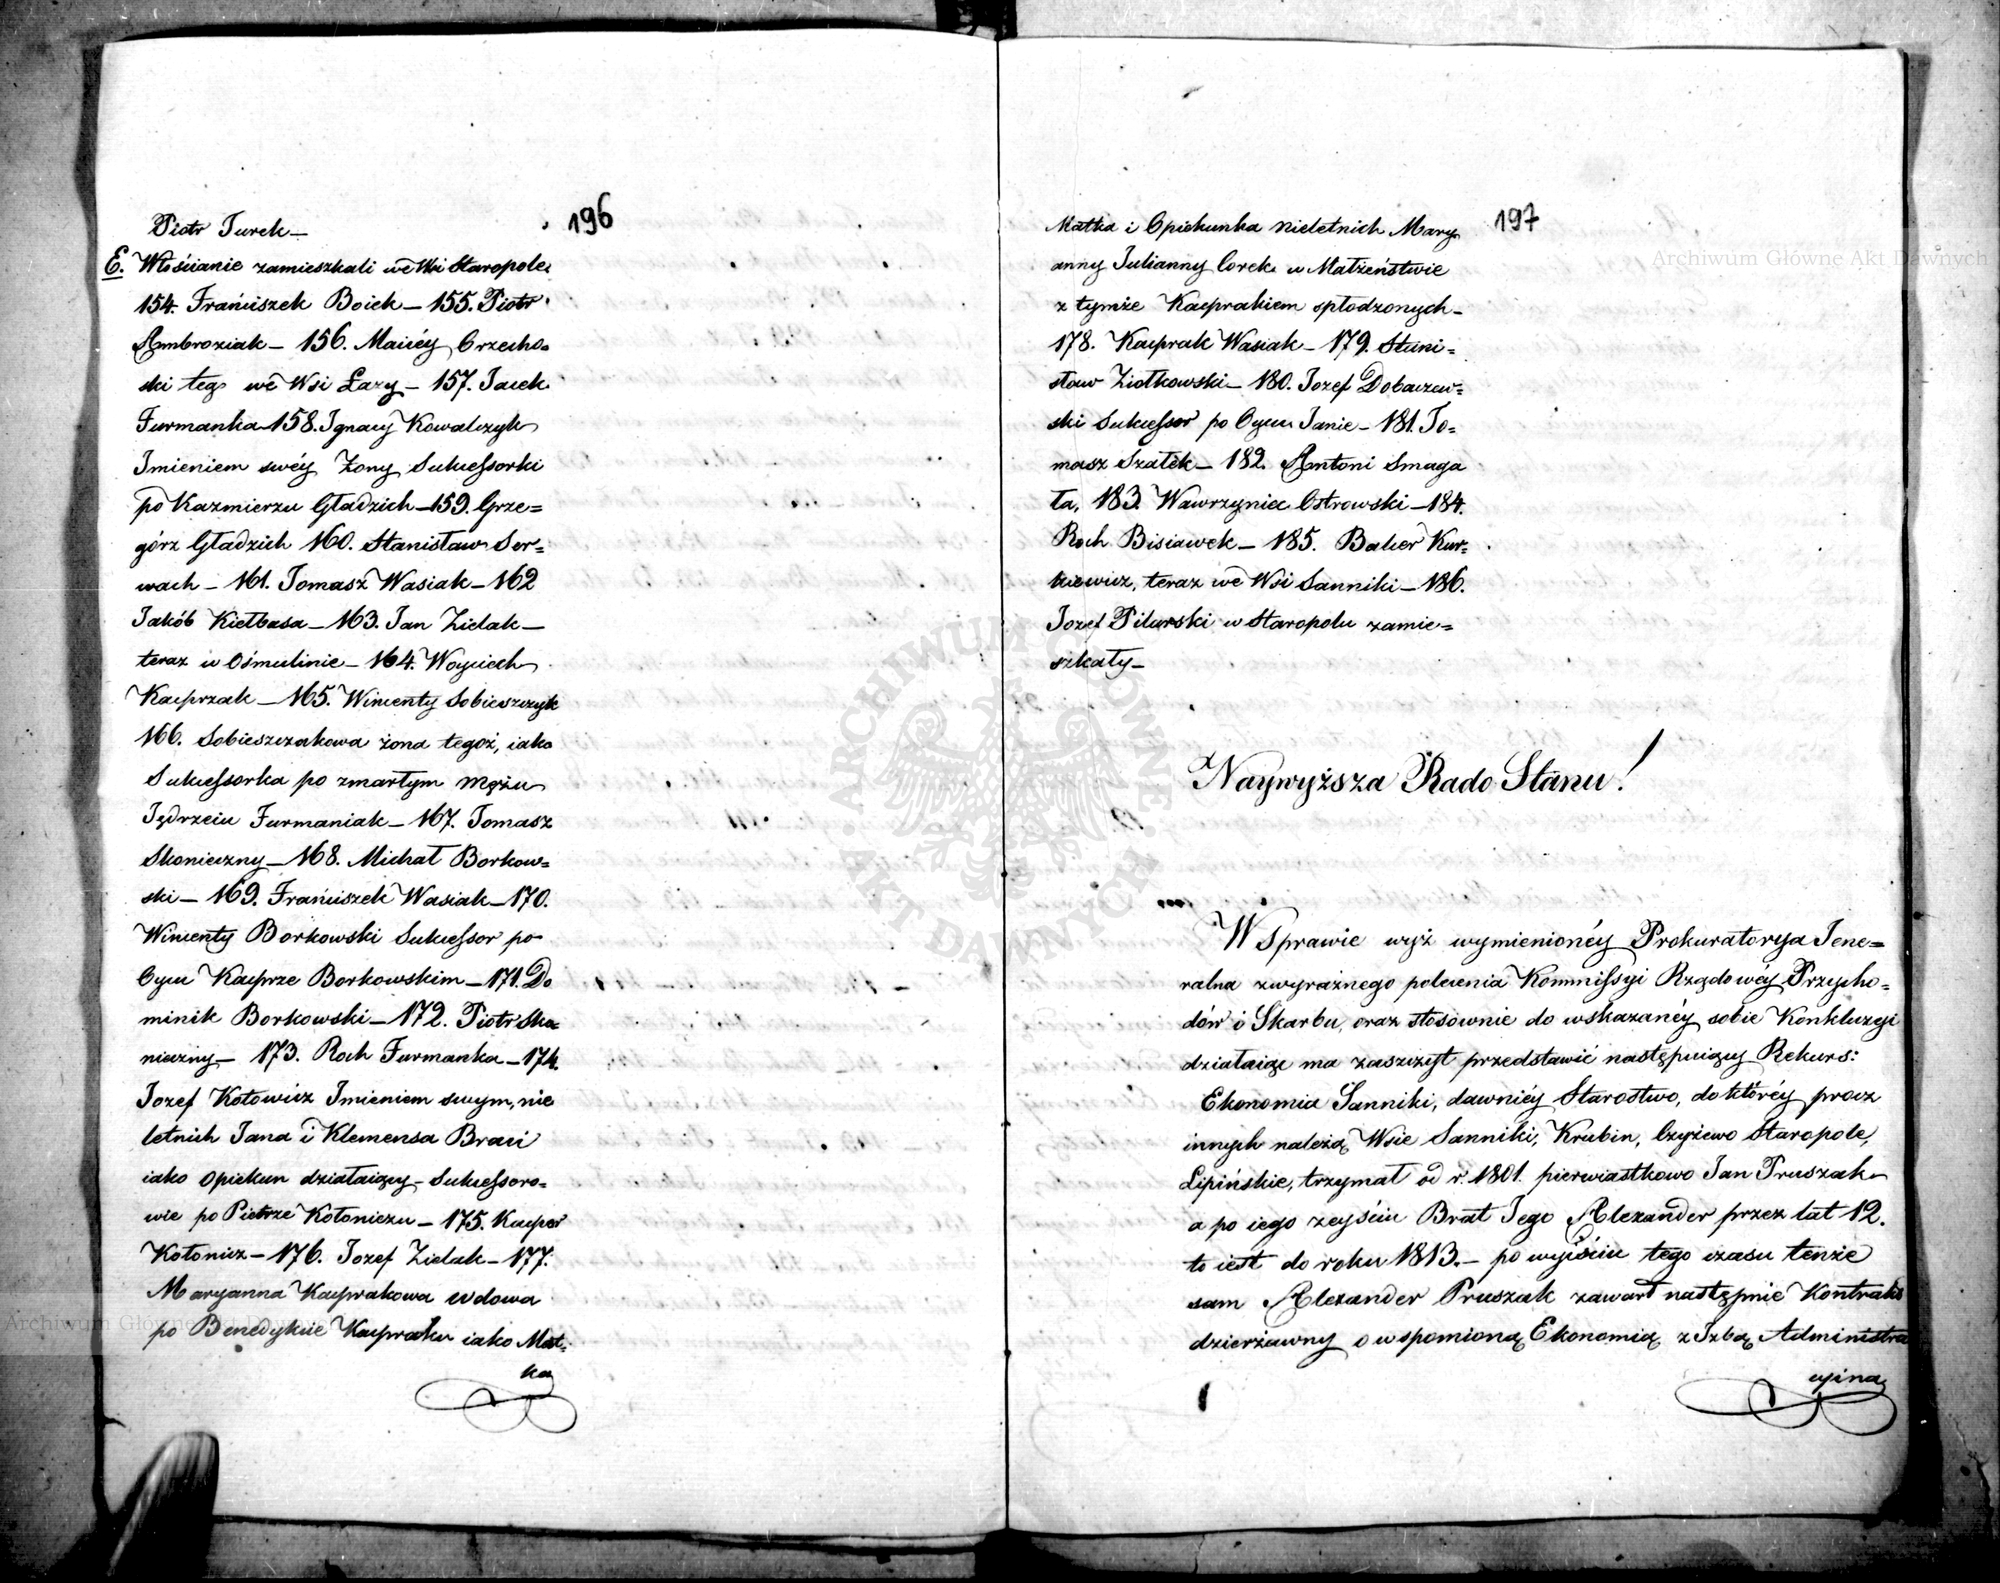 196
Piotr Turek —
E. Włościanie zamieszkali we Wsi Staropole
154. Franciszek Bociek — 155. Piotr
Ambroziak — 156. Maciéy Orzecho=
ski tego we Wsi Łazy — 157. Jacek
Furmanka — 158. Ignacy Kowalczyk
Imieniem swéy Żony Sukcessorki
po Kazmierzu Gładzich — 159. Grze=
górz Gładzich 160. Stanisław Ser=
wach — 161. Tomasz Wasiak — 162
Jakób Kiełbasa — 163. Jan Zielak —
teraz w Osmulinie — 164. Woyciech
Kacprzak — 165. Wincenty Sobieszczyk
166. Sobieszczakowa żona tegoż, iako
Sukcessorka po zmarłym Mężu
Jędrzeiu Furmaniak — 167. Tomasz
Skonieczny — 168. Michał Borkow=
ski — 169. Franciszek Wasiak — 170.
Wincenty Borkowski Sukcessor po
Oycu Kacprze Borkowskim — 171. Do
minik Borkowski — 172. Piotr Sko=
nieczny — 173. Roch Furmanka — 174.
Jozef Kołowicz Imieniem swym, nie
letnich Jana i Klemensa Braci
iako Opiekun działaiący — Sukcessoro=
wie po Pietrze Kołoniczu — 175. Kacper
Kołonicz — 176. Jozef Zielak — 177.
Maryanna Kacprakowa wdowa
po Benedykcie Kacpraku iako Mat=
ka
197
Matka i Opiekunka nieletnich Mary
anny Julianny Corek w Małżeństwie
z tymże Kacprakiem spłodzonych —
178. Kacprak Wasiak — 179. Stani=
sław Ziołkowski — 180. Jozef Dobaczew=
ski Sukcessor po Oycu Janie — 181. To=
masz Szałek — 182. Antoni Smaga
ła, 183. Wawrzyniec Ostrowski — 184.
Roch Bisiawek — 185. Balcer Kur=
kiewicz, teraz we Wsi Sanniki — 186.
Jozef Pilarski w Staropolu zamie=
szkały —
Naywyższa Rado Stanu!
W Sprawie wyż wymienionéy Prokuratorya Jene=
ralna z wyraźnego polecenia Kommissyi Rządowéy Przycho=
dów i Skarbu, oraz stosownie do wskazanéy sobie Konkluzyi
działaiąc ma zaszczyt przedstawić następuiący Rekurs:
Ekonomia Sanniki, dawniéy Starostwo, do któréy procz
innych należą Wsie Sanniki, Krubin, Czyżewo Staropole,
Lipińskie, trzymał od r. 1801. pierwiastkowo Jan Pruszak
a po iego zeyściu Brat Jego Alexander przez lat 12.
to iest do roku 1813. — po wyiściu tego czasu tenże
sam Alexander Pruszak zawarł następnie Kontrakt
dzierżawny o wspomioną Ekonomią z Izbą Administra
cyina
Archiwum Główne Akt Dawnych
Archiwum Główne Akt Dawnych
ARCHIWUM GŁÓWNE AKT DAWNYCH